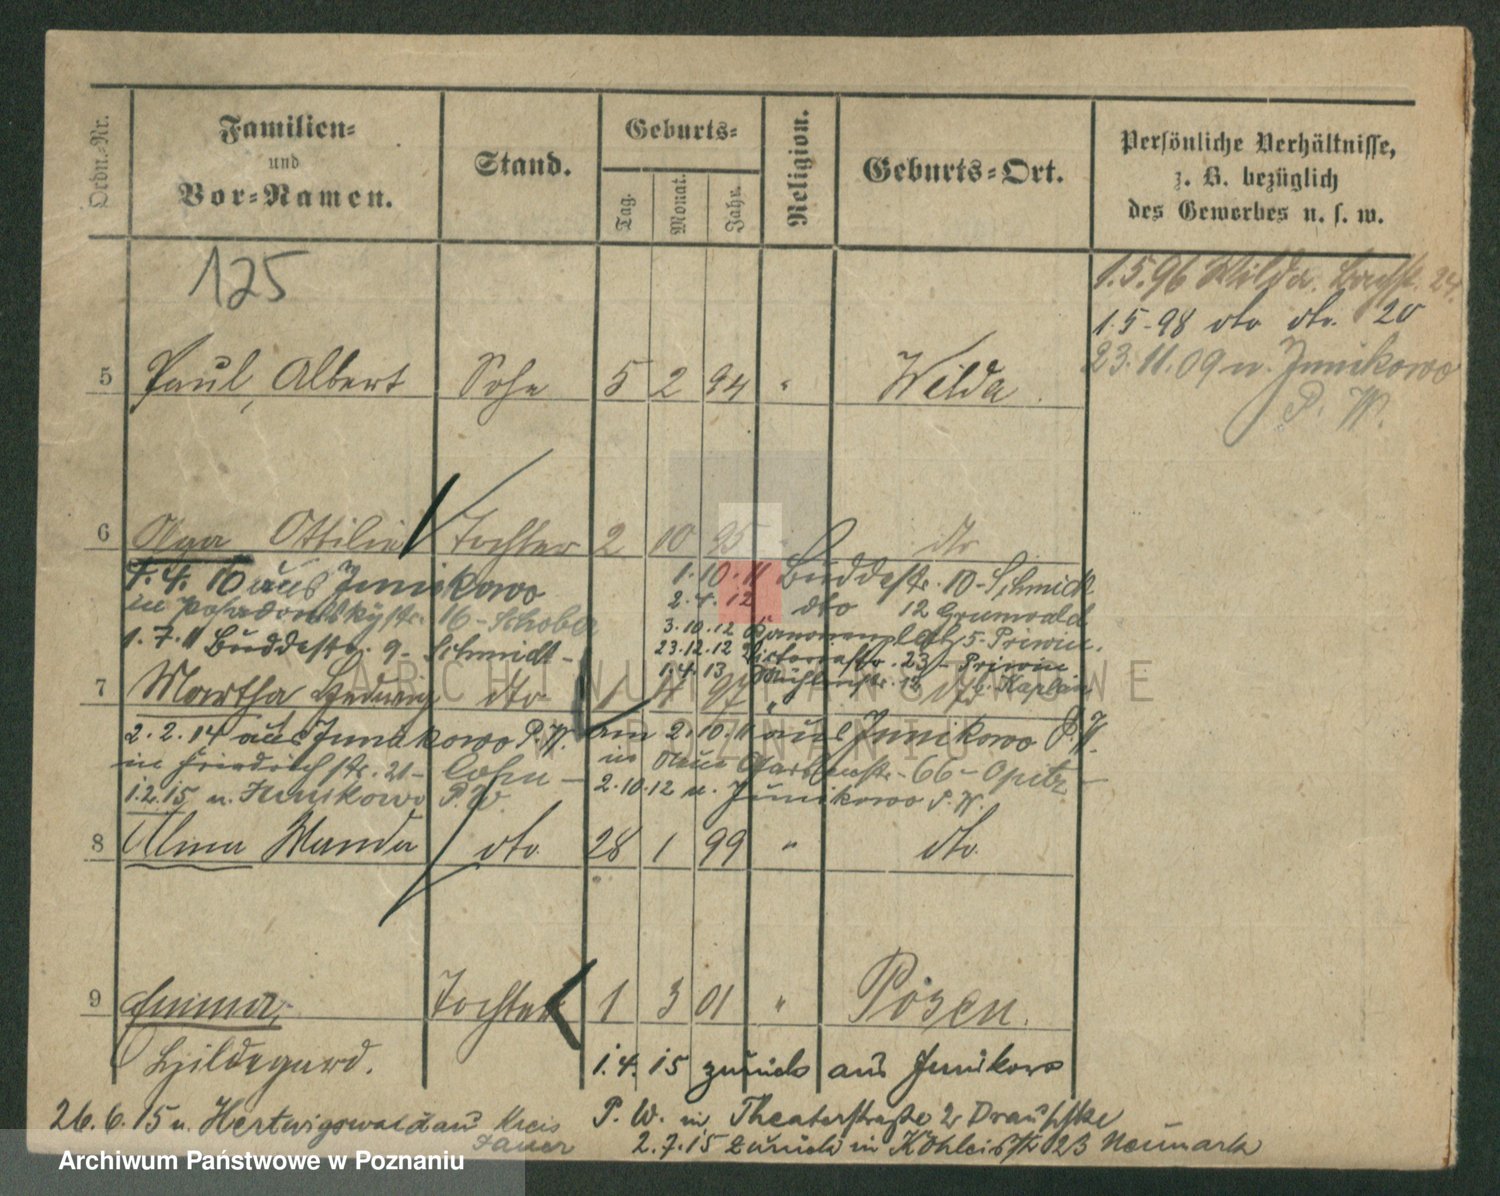 Ordn.-Nr.
Familien=
und
Vor=Namen.
Stand.
Geburts=
Tag.
Monat.
Jahr.
Religion.
Geburts=Ort.
Persönliche Verhältnisse,
z. B. bezüglich
des Gewerbes u. s. w.
125
1.5.96 Wilda. 24.
1.5-98 dto dto. 20
23.11.09 n. Junikowo
P. W.
5 Paul, Albert Sohn 5 2 94 " Wilda.
6 Olga Ottilie Tochter 2 10 95 " dto
1.4.10 aus Junikowo
in 16 - Schober
1.7.11 Buddestr. 9 - Schmidt -
1.10.11 Buddestr. 10 - Schmidt
2.4.12 dto 12 Grunwald
3.10.12 5 - Priwin.
23.12.12 Victoriastr. 23 - Priwin
1.4.13 Mühlenstr. 12 b. Kaplan
7 Martha Hedwig dto 1 4 97 " dto
2.2.14 aus Junikowo P. W.
in Friedrichstr. 21 - Cohn -
1.2.15 n. Junikowo P. W.
am 2.10.11 aus Junikowo P. W.
in Neue Gartenstr. 66 - Opitz -
2.10.12 n. Junikowo P. W.
8 Alma Wanda dto. 28 1 99 " dto.
9 Emma, Tochter 1 3 01 " Posen.
Hildegard.
1.4.15 zurück aus Junikowo
P. W. in Theaterstraße 2
26.6.15 n. Hertwigswaldau Kreis
Jauer
2.7.15 zurück in 23 Neumark
ARCHIWUM PAŃSTWOWE
W POZNANIU
Archiwum Państwowe w Poznaniu